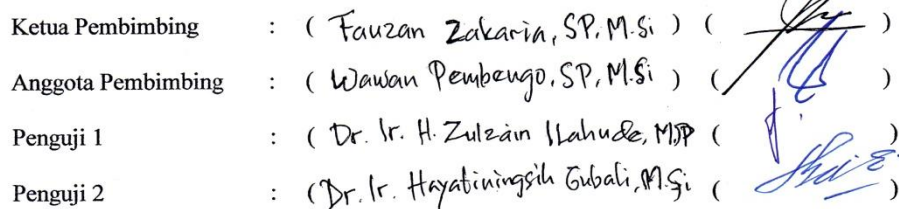 Ketua Pembimbing : ( Fauzan Zakaria, SP, M.Si ) ( )
Anggota Pembimbing : ( Wawan Pembengo, SP, M.Si ) ( )
Penguji 1 : ( Dr. Ir. H. Zulzain Ilahude, MP ( )
Penguji 2 : ( Dr. Ir. Hayatiningsih Gubali, M.Si ( )